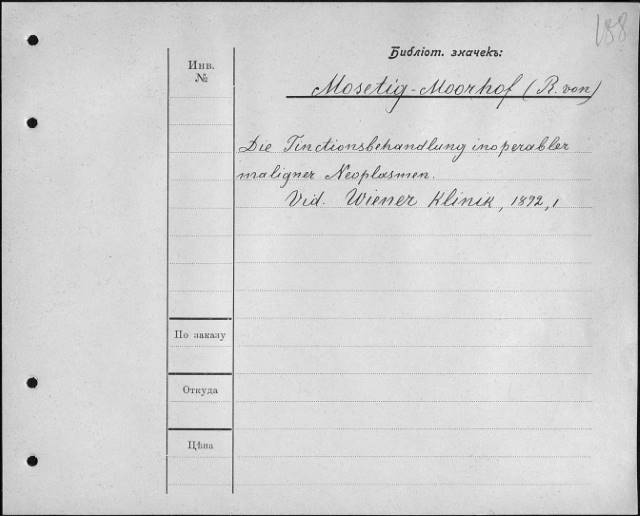 188
Библіот. значекъ:
Инв.
№
Mosetig-Moorhof (R. von)
Die Tinctionsbehandlung inoperabler
maligner Neoplasmen.
Vid. Wiener Klinik, 1892, 1
По заказу
Откуда
Цѣна